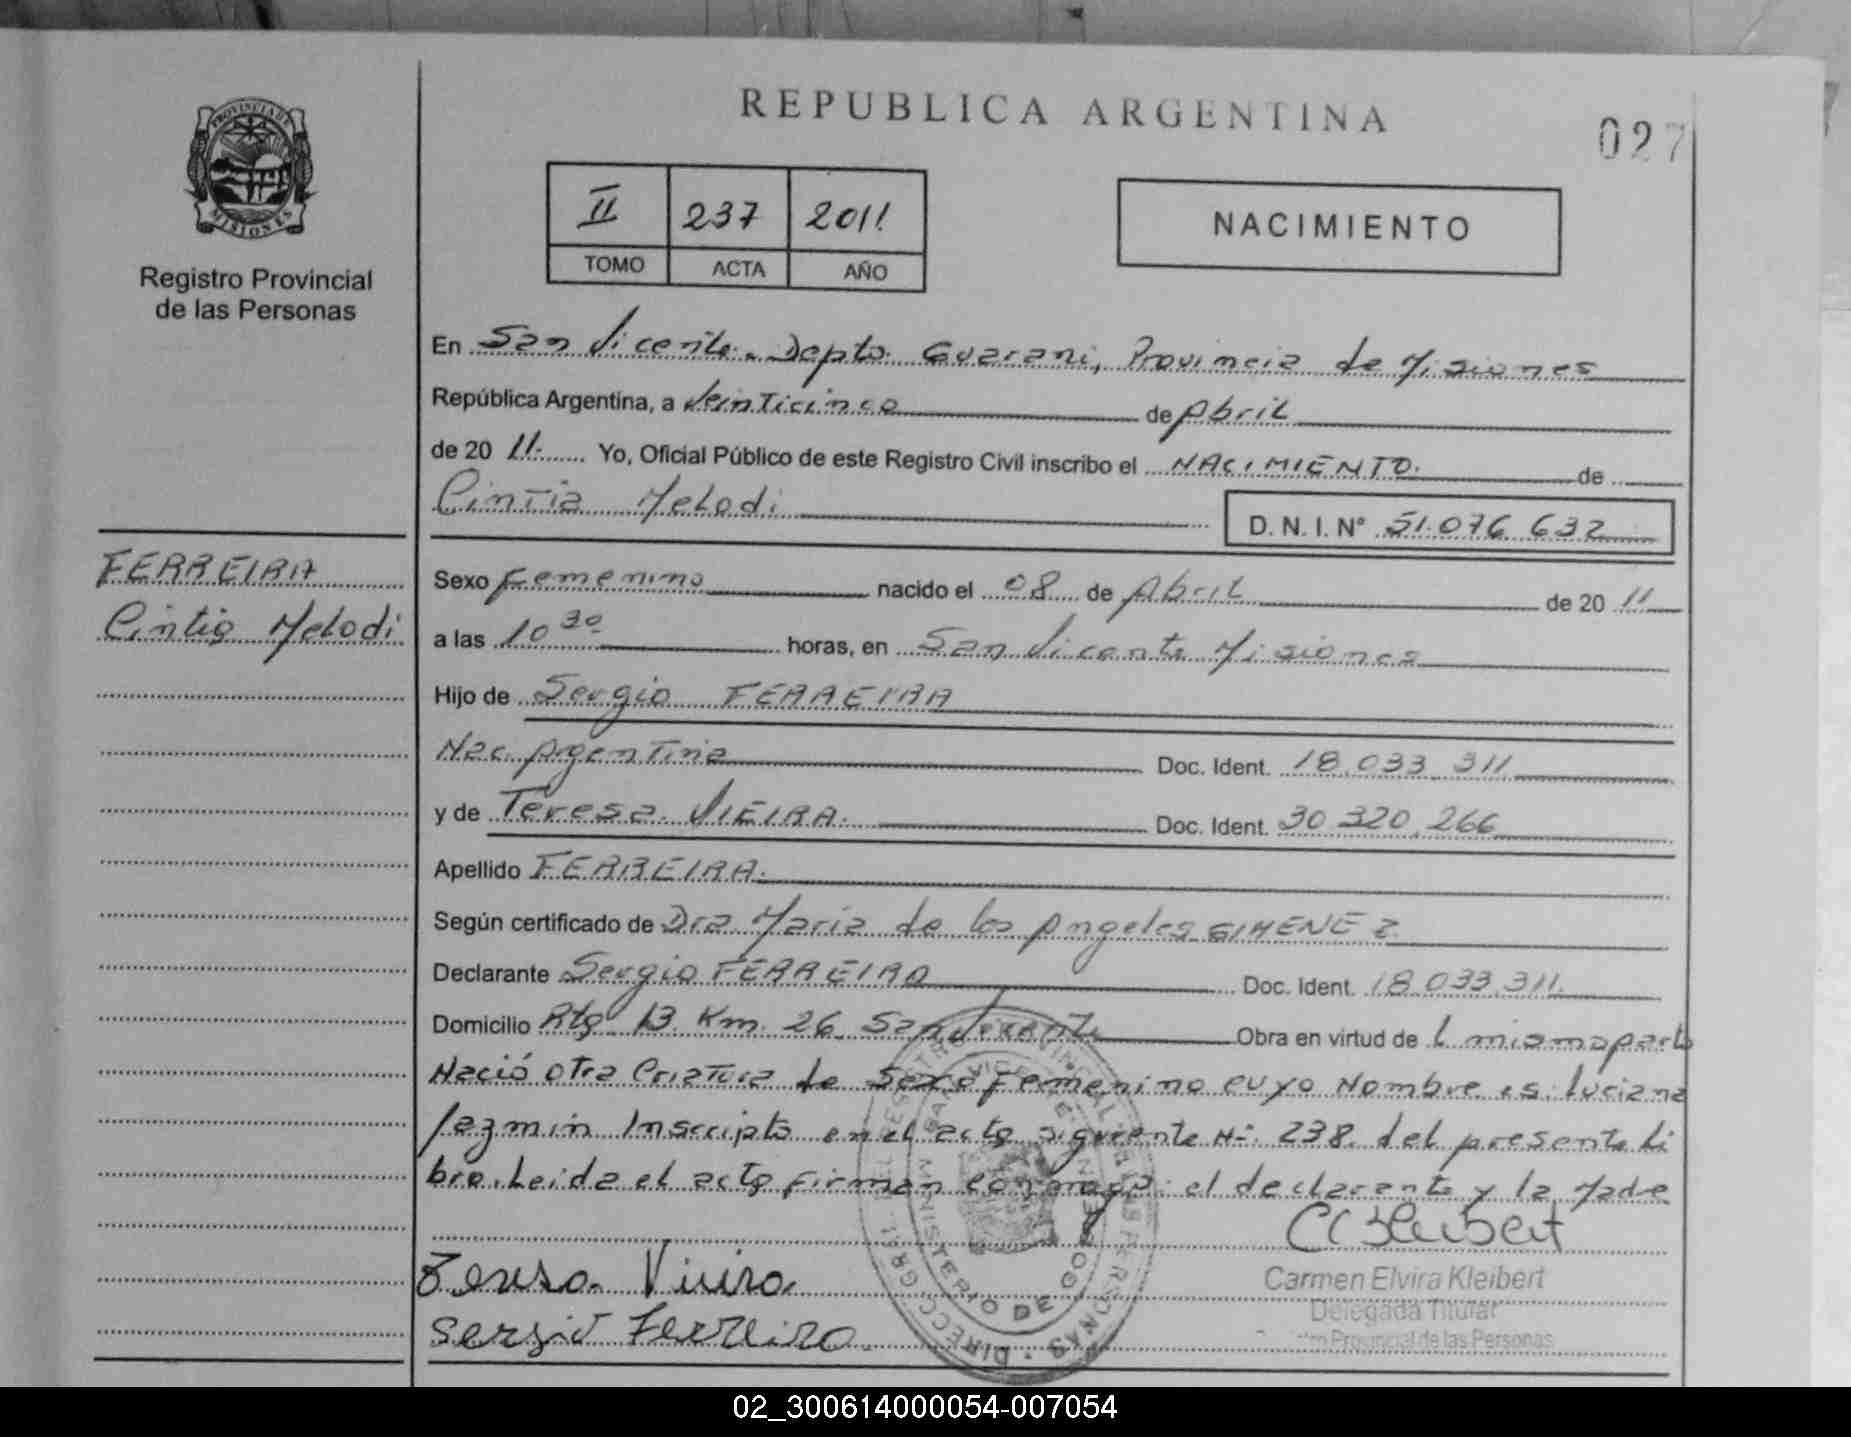 REPUBLICA ARGENTINA
027
PROVINCIA DE MISIONES
Registro Provincial
de las Personas
II 237 2011.
TOMO ACTA AÑO
NACIMIENTO
En San Vicente. Depto. Guarani, Provincia de Misiones
República Argentina, a Veinticinco de Abril
de 20 11.- Yo, Oficial Público de este Registro Civil inscribo el NACIMIENTO. de
Cintia Melodi D. N. I. N° 51.076.632
FERREIRA
Cintia Melodi
Sexo Femenino nacido el 08 de Abril de 20 11
a las 10 30 horas, en San Vicente Misiones
Hijo de Sergio FERREIRA
Nac. Argentina Doc. Ident. 18.033.311
y de Teresa VIEIRA. Doc. Ident. 30.320.266
Apellido FERREIRA.
Según certificado de Dra. Maria de los Angeles GIMENEZ
Declarante Sergio FERREIRA Doc. Ident. 18.033.311.
Domicilio Rta 13 Km. 26 San Vicente Obra en virtud de l mismo parto
Nació otra Criatura de Sexo Femenino cuyo Nombre es: Luciana
Jazmin Inscripta en el acta siguiente N°. 238. del presente Li
bro. Leida el acta firman conmigo: el declarante y la Madre
Teresa Vieira
Sergio Ferreira
CEKleibert
Carmen Elvira Kleibert
Delegada Titular
Provincial de las Personas
DIRECC. GRAL. DEL REGISTRO PROVINCIAL DE LAS PERSONAS
MINISTERIO DE GOBIERNO
SAN VICENTE
02_300614000054-007054